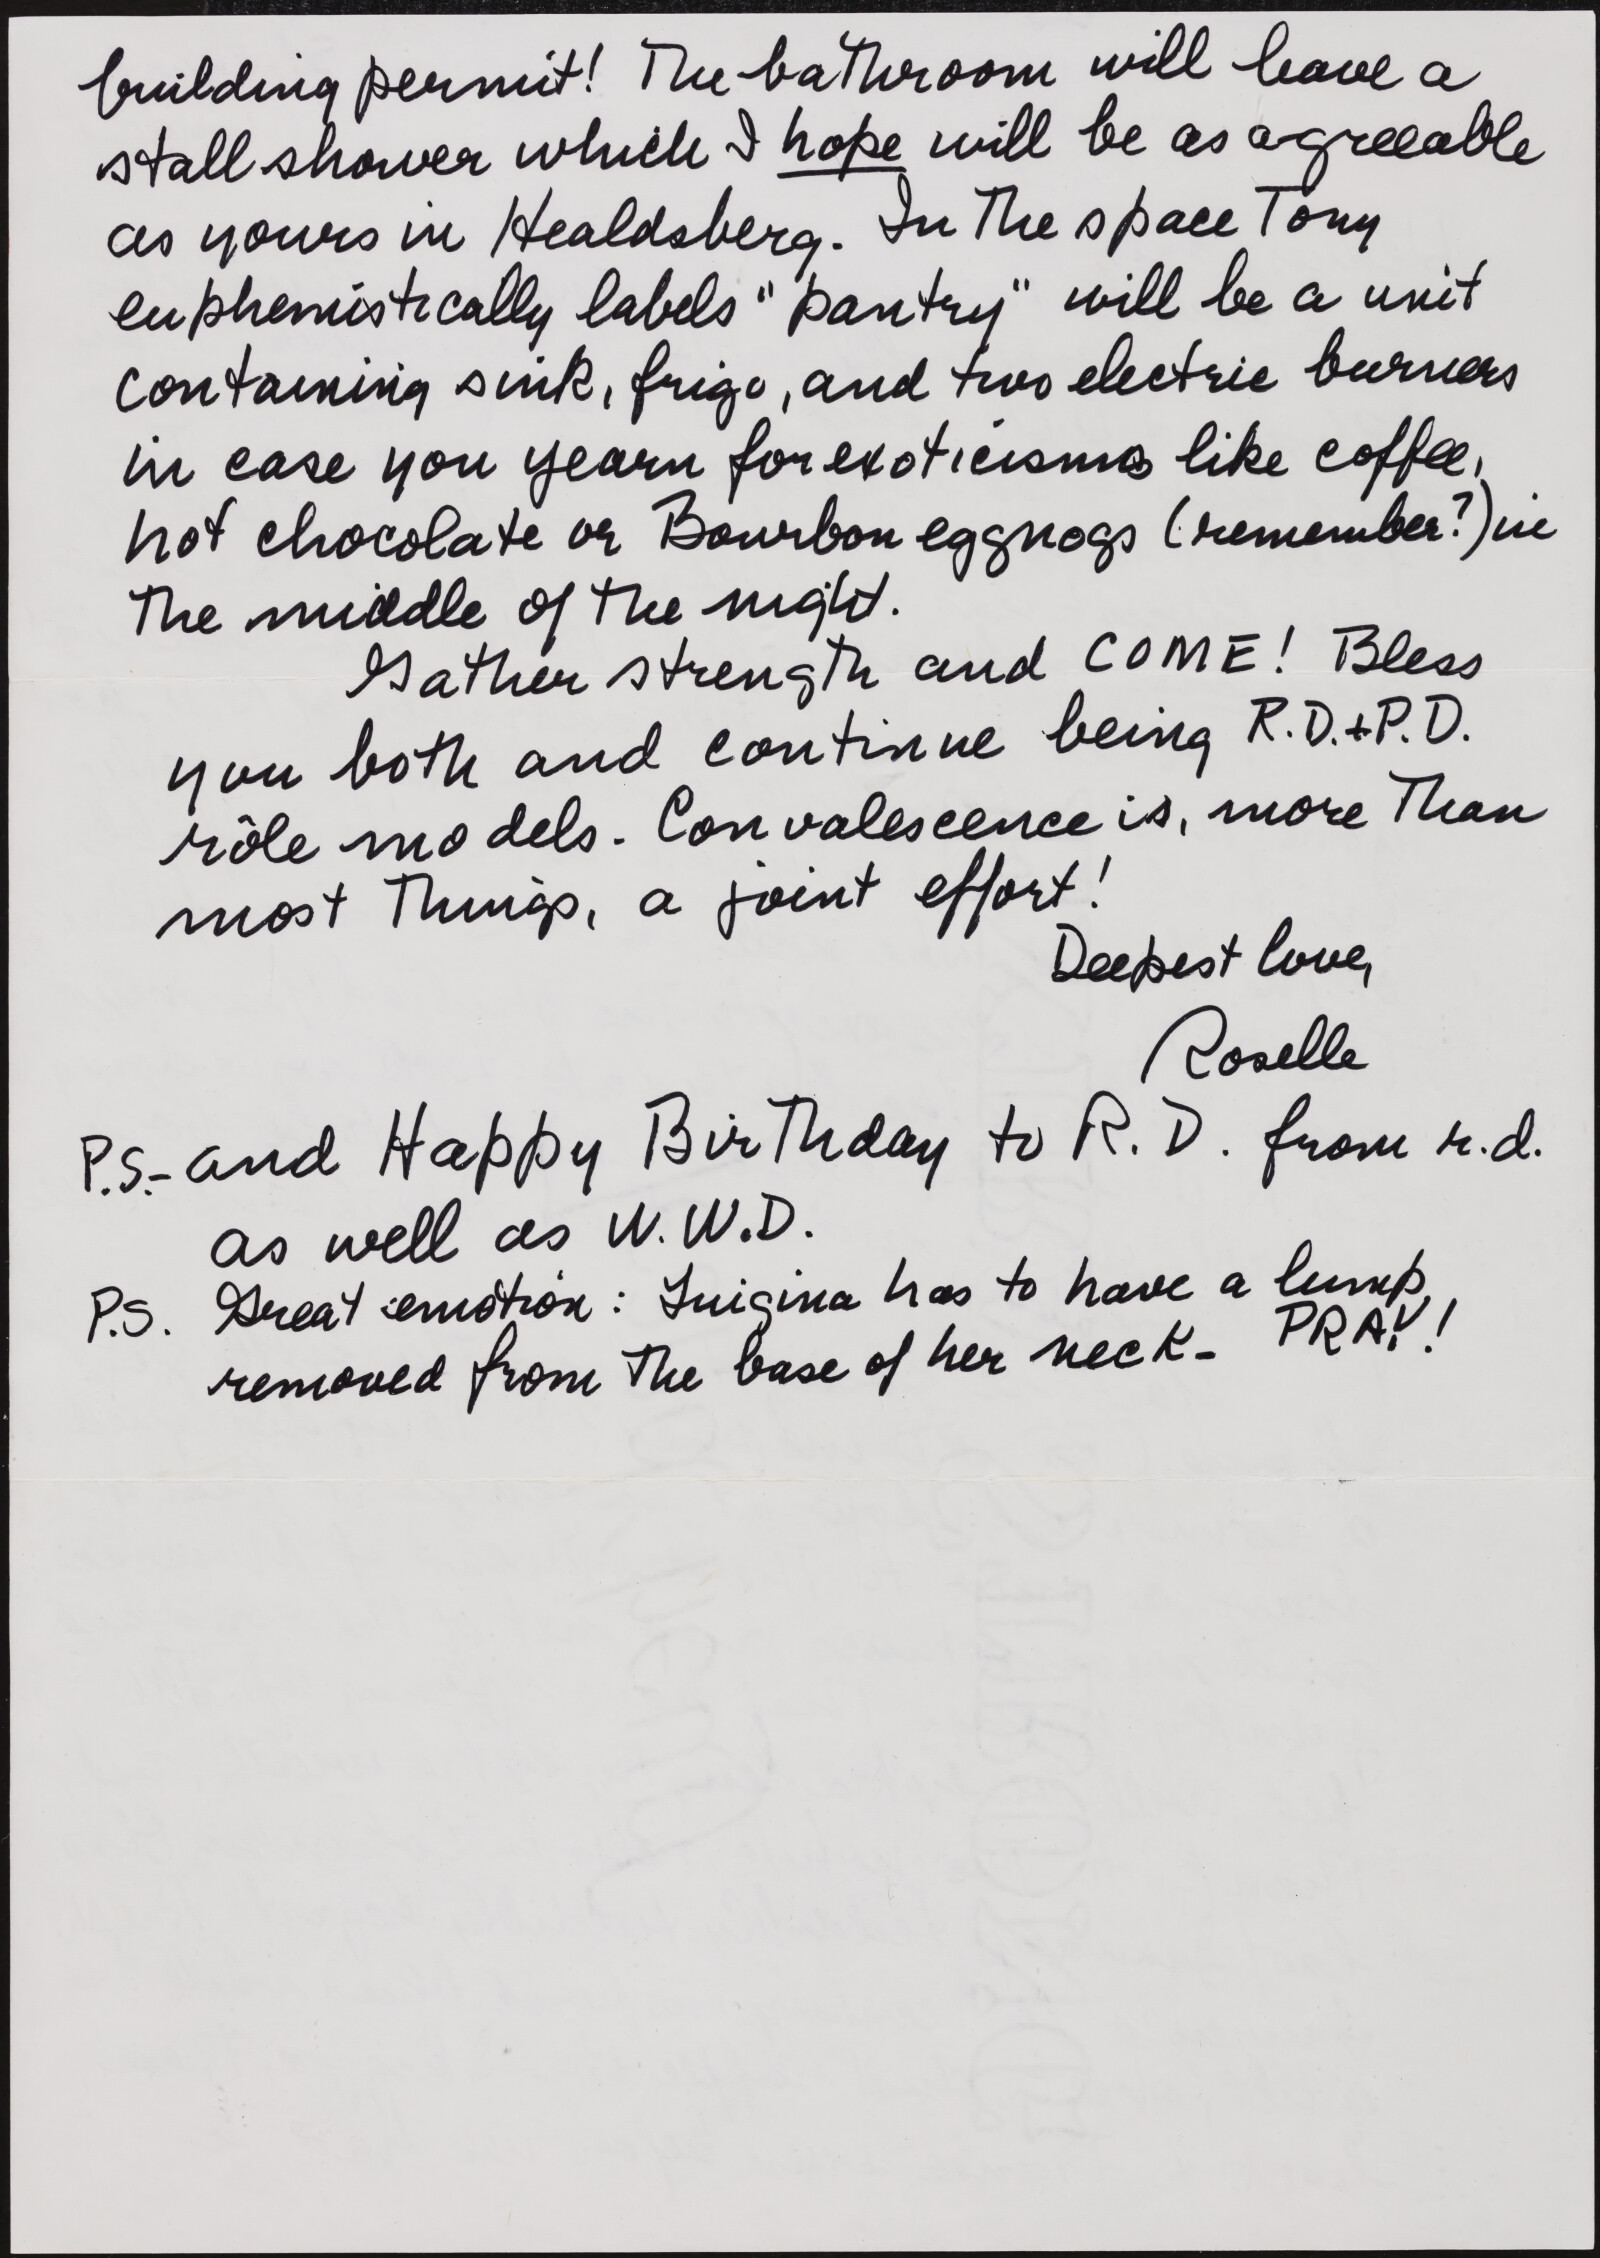 building permit! The bathroom will have a
stall shower which I hope will be as agreeable
as yours in Healdsberg. In the space Tony
euphemistically labels "pantry" will be a unit
containing sink, frigo, and two electric burners
in case you yearn for exoticisms like coffee,
hot chocolate or Bourbon eggnogs (remember?) in
the middle of the night.
Gather strength and COME! Bless
you both and continue being R.D.+P.D.
rôle models. Convalescence is, more than
most things, a joint effort!
Deepest love,
Roselle
P.S.- and Happy Birthday to R.D. from r.d.
as well as W.W.D.
P.S. Great emotion: Luigina has to have a lump
removed from the base of her neck - PRAY!